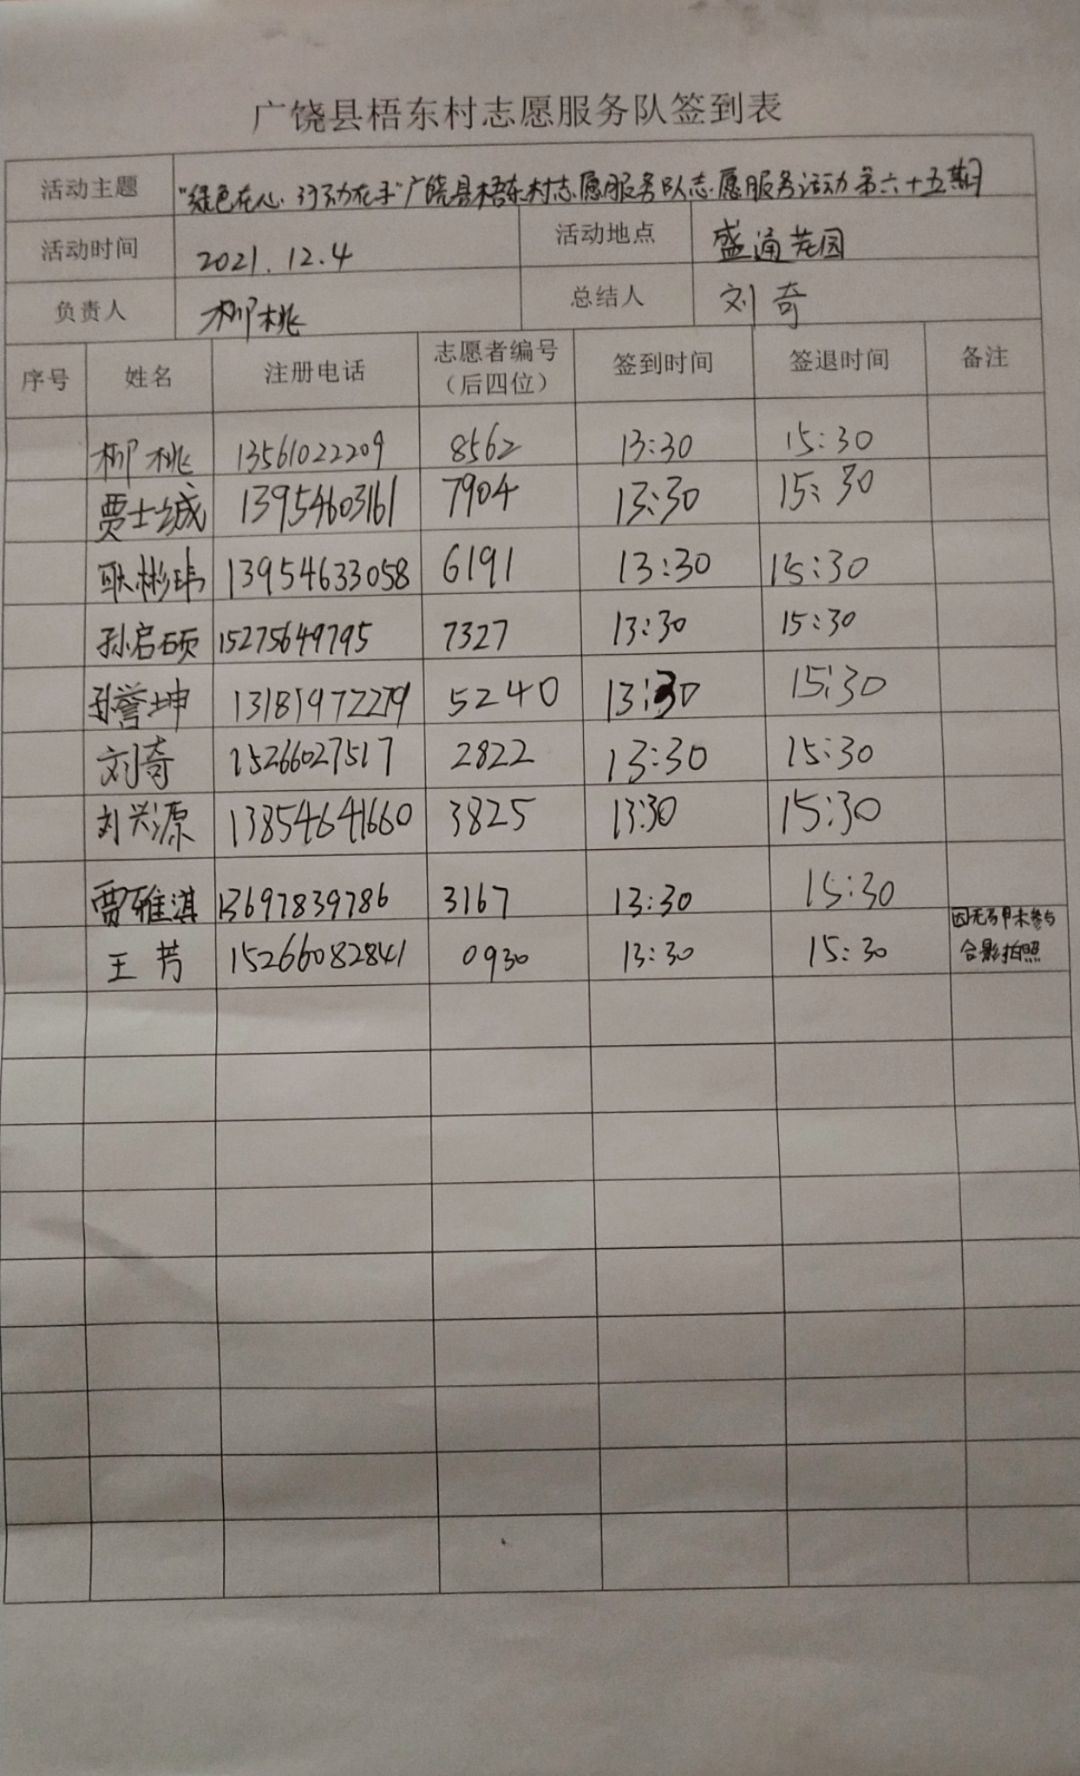 广饶县梧东村志愿服务队签到表
活动主题 "绿色在心·行动在手"广饶县梧东村志愿服务队志愿服务活动第六十五期
活动时间 2021.12.4 活动地点 盛通花园
负责人 柳桃 总结人 刘奇
序号 姓名 注册电话 志愿者编号（后四位） 签到时间 签退时间 备注
柳桃 13561022209 8562 13:30 15:30
贾士城 13954603161 7904 13:30 15:30
耿彬玮 13954633058 6191 13:30 15:30
孙启硕 15275649795 7327 13:30 15:30
孙誉坤 13181972279 5240 13:30 15:30
刘奇 15266027517 2822 13:30 15:30
刘兴源 13854641660 3825 13:30 15:30
贾雅淇 13697839786 3167 13:30 15:30
王芳 15266082841 0930 13:30 15:30 因无马甲未参与合影拍照